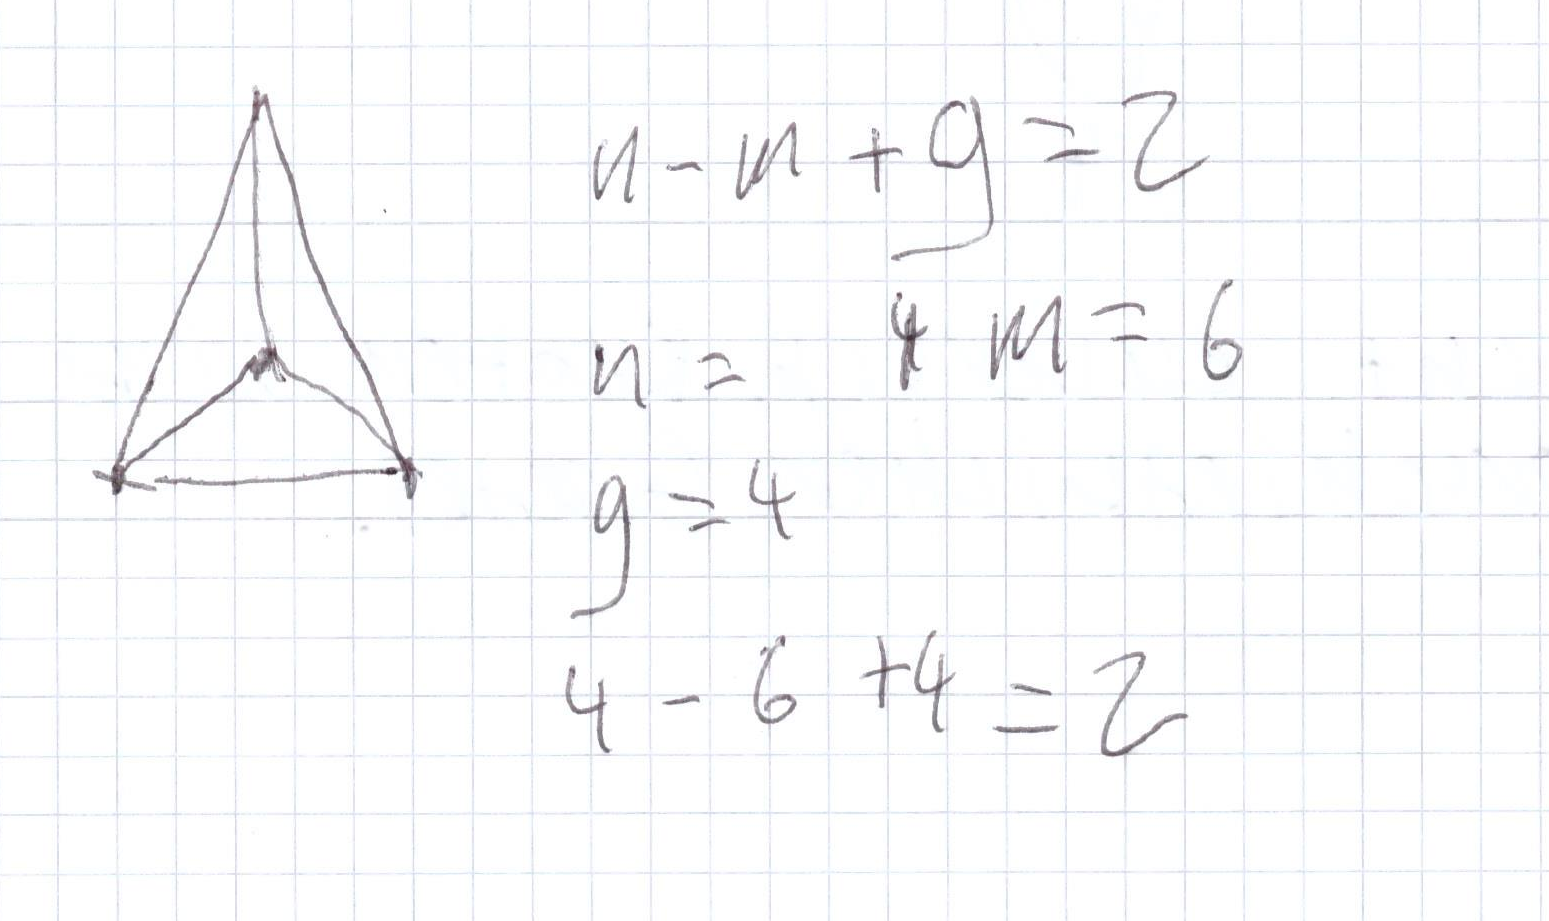 n - m + g = 2
n = 4 m = 6
g = 4
4 - 6 + 4 = 2